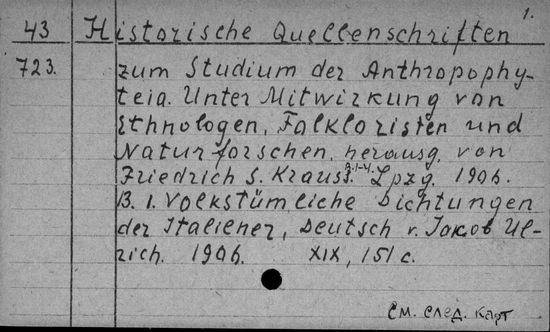 1.
43 Historische Quellenschriften
723. zum Studium der Anthropophy-
teia. Unter Mitwirkung von
Ethnologen, Falkloristen und
Naturforschen, herausg. von
Friedrich S. Krauss. B.1-4. Lpzg. 1906.
B. 1. Volkstümliche Dichtungen
der Italiener, Deutsch v. Jakob Ul-
rich. 1906. XIX, 151 c.
См. след. карт